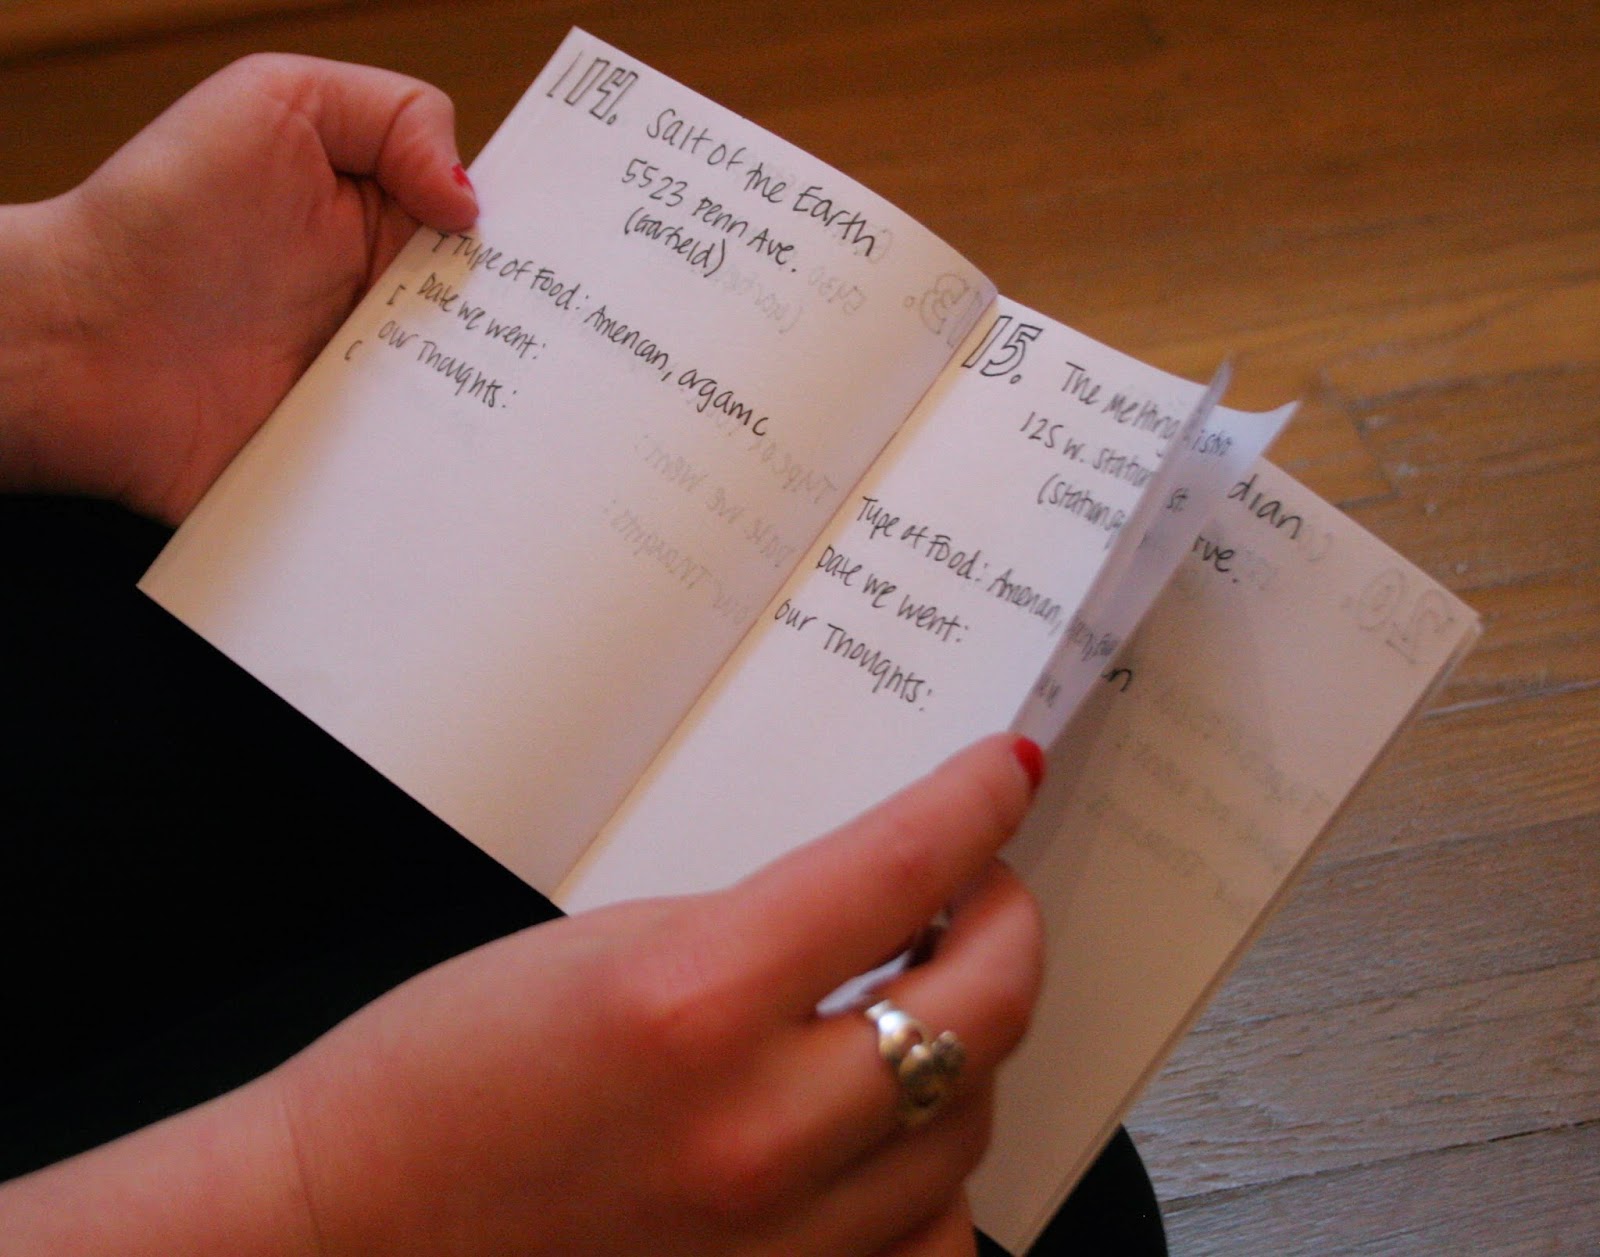 14. Salt of the Earth
5523 Penn Ave.
(Garfield)
Type of Food: American, organic
Date we went:
Our Thoughts:
15. The Melting
125 W. Station
(Station
Type of Food: American,
Date we went:
Our Thoughts:
dian
ve.